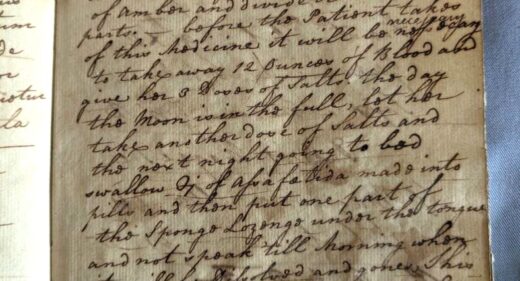 tum
or
la
of amber and divide
parts. — before the Patient takes
of this Medicine it will be necessary
to take away 12 Ounces of Blood and
give her 3 Doses of Salts, the day
the Moon is in the full, let her
take another dose of Salts and
the next night going to bed
swallow of Assafetida made into
pills and then put one part of
the Sponge Lozenge under the tongue
and not speak till Morning when
it will be dissolved and gone, This